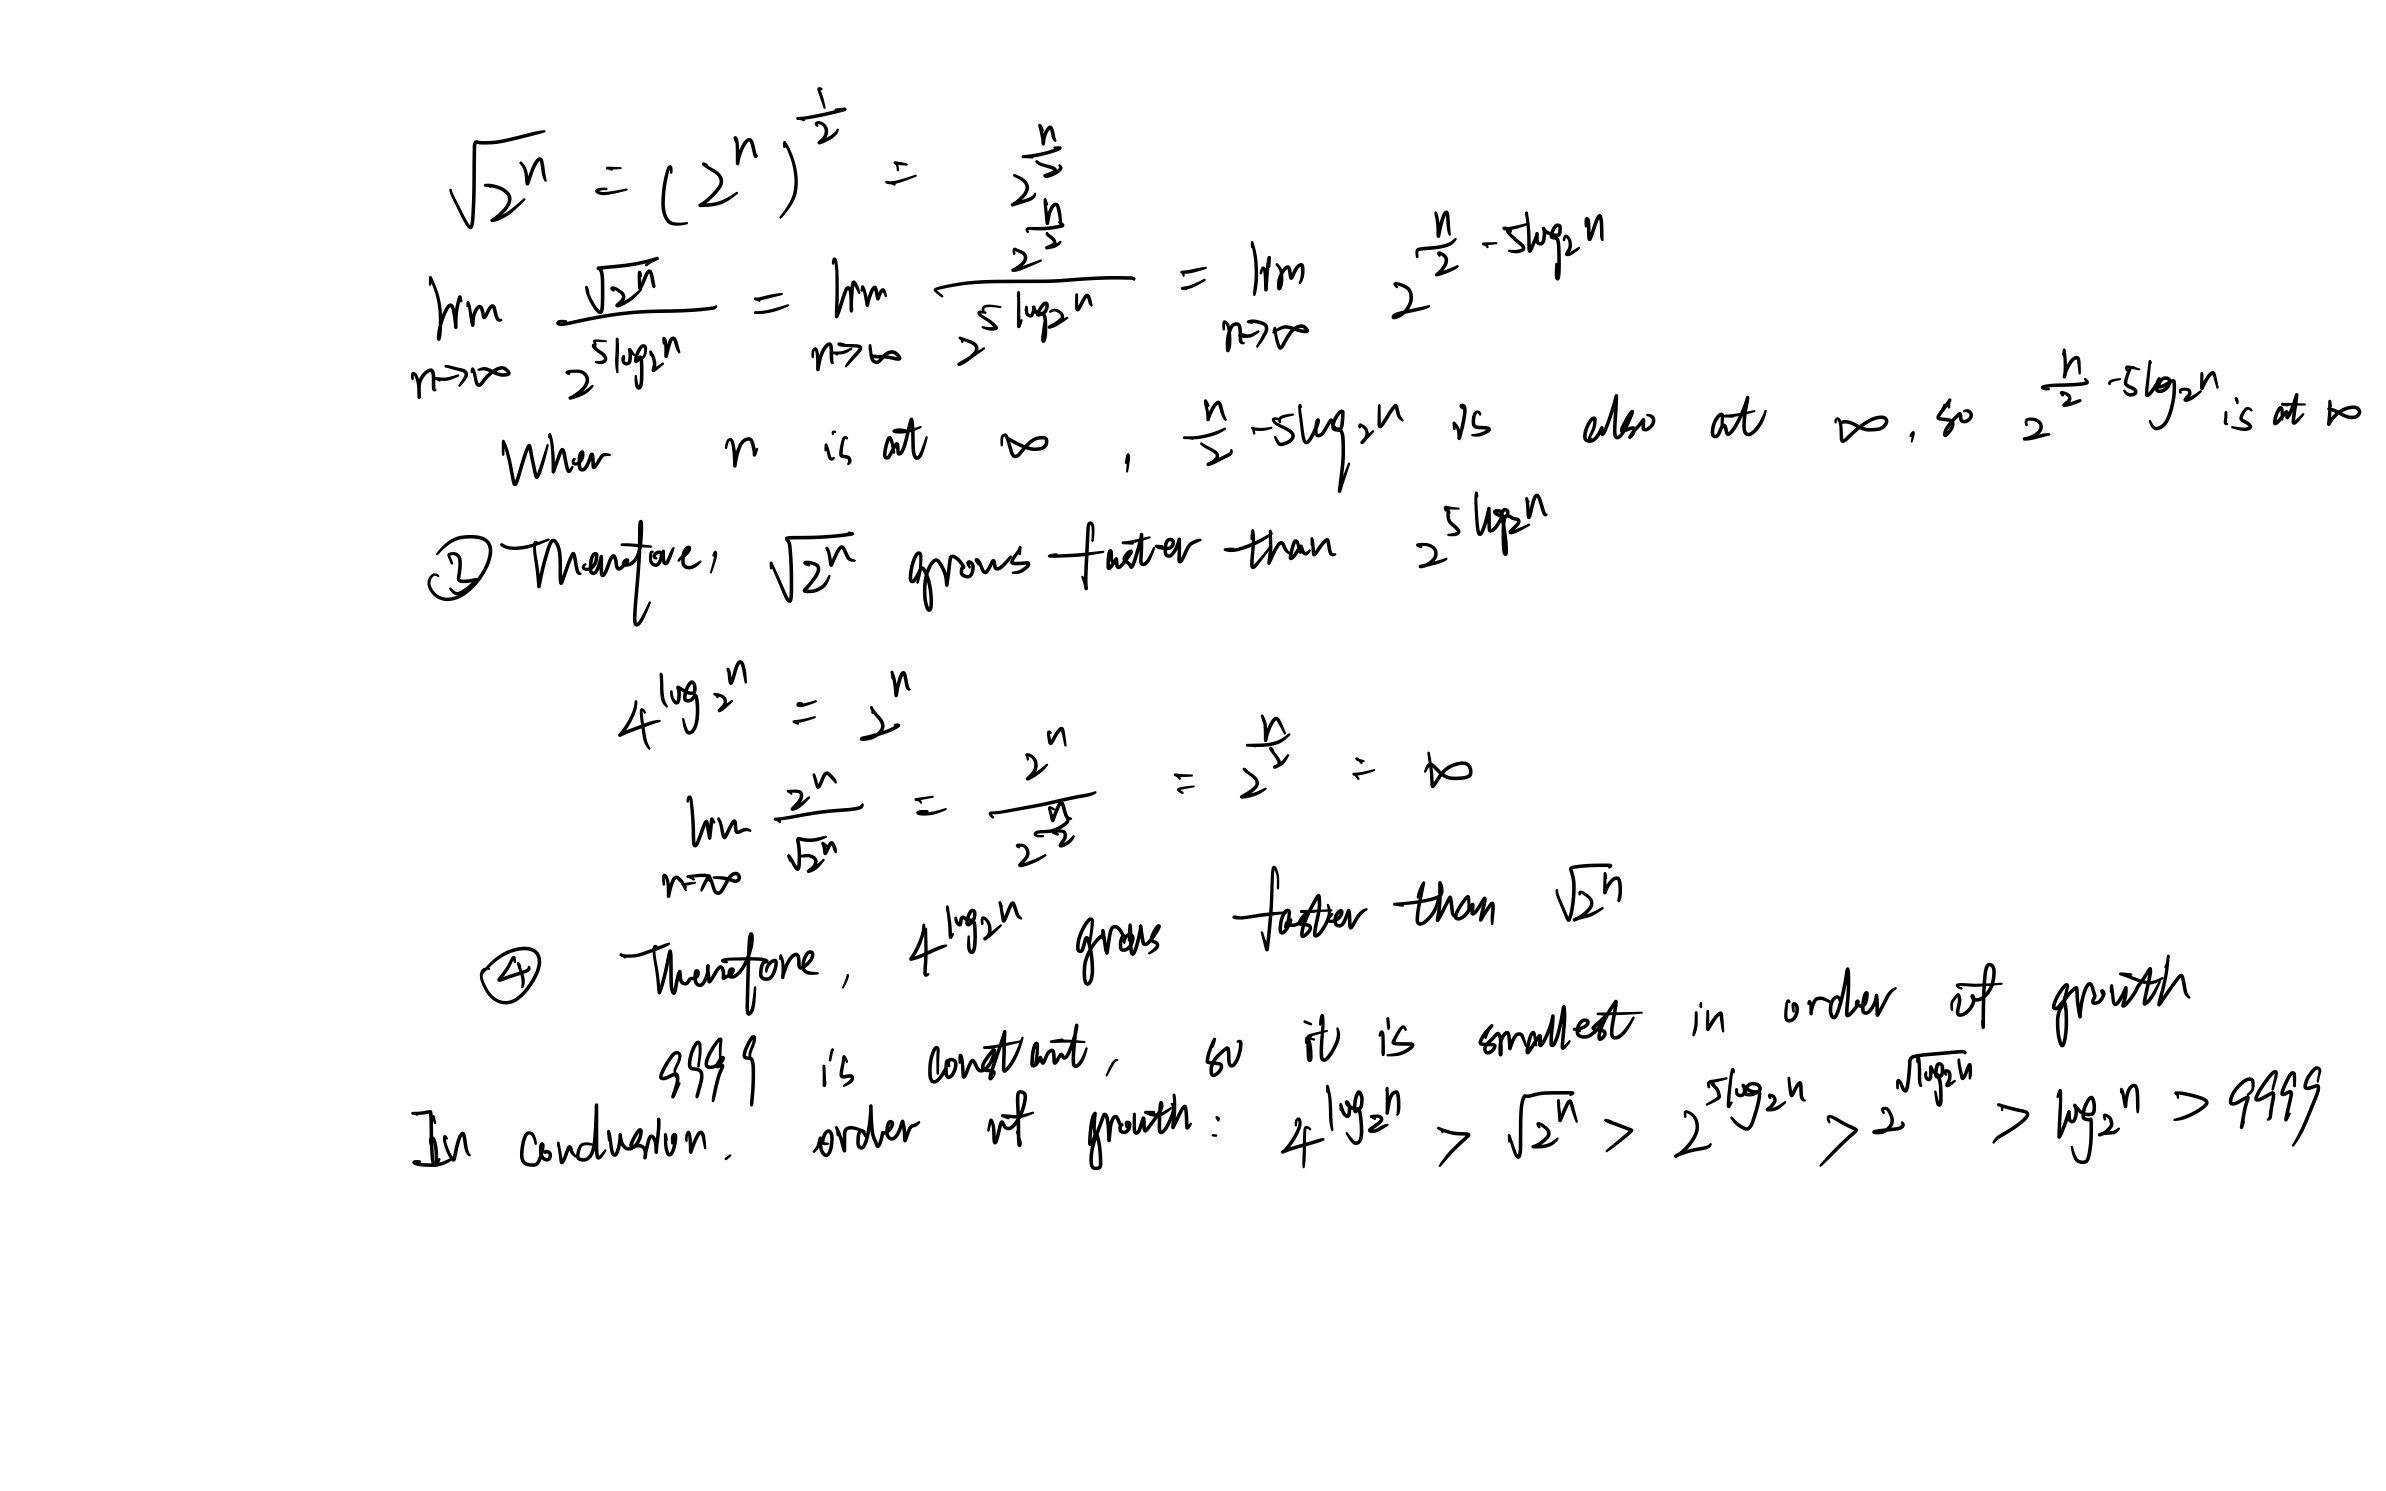 √(2^n) = (2^n)^(1/2) = 2^(n/2)
lim n→∞ √(2^n) / 2^(5log₂n) = lim n→∞ 2^(n/2) / 2^(5log₂n) = lim n→∞ 2^(n/2 - 5log₂n)
When n is at ∞, n/2 - 5log₂n is also at ∞, so 2^(n/2 - 5log₂n) is at ∞
③ Therefore, √(2^n) grows faster than 2^(5log₂n)
4^(log₂n) = 2^n
lim n→∞ 2^n / √(2^n) = 2^n / 2^(n/2) = 2^(n/2) = ∞
④ Therefore, 4^(log₂n) grows faster than √(2^n)
9999 is constant, so it is smallest in order of growth
In conclusion, order of growth: 4^(log₂n) > √(2^n) > 2^(5log₂n) > 2^(√(log₂n)) > log₂n > 9999